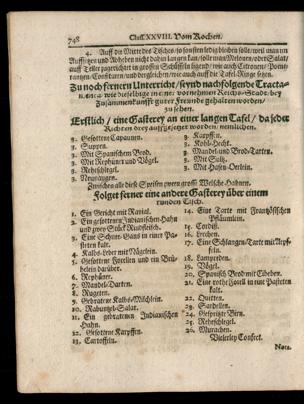 748 Cap. XXVIII. Vom Kochen.
4. Auff die Mitte des Tisches, so sonsten ledig bleiben solle, weil man im
Aufftragen und Abheben nicht dahin langen kan, solle man Melonen, oder Salat,
auff Teller zugerichtet in grossen Schüsseln, wie auch Citronen, Pome-
rantzen, Confituren, und dergleichen, wie auch auff die Tafel-Ringe setzen.
Zu noch fernern Unterricht, seynd nachfolgende Tracta-
wie dieselbige in einer vornehmen Reichs-Stadt bey
Zusammenkunfft guter Freunde gehalten worden,
zu sehen.
Erstlich, eine Gasterey an einer langen Tafel, da jeder
Richten drey auffgesetzet worden, nemlichen.
1. Gesottene Capaunen.
2. Suppen.
3. Mit Spanischem Brod.
4. Mit Rephüner und Vögel.
5. Rehschlegel.
6. Karpffen.
7. Kohl-Hecht.
8. Mandel und Brod-Tarten.
9. Mit Sultz.
Zwischen alle diese Speisen zween grosse Welsche-Hahnen.
Folget ferner eine andere Gasterey über einem
runden Tisch.
1. Ein Gericht mit
2. Ein gesottenen Indianischen-Hahn
und zwey Stück Rindfleisch.
3. Eine Schunc-Gans in einer Pa-
steten kalt.
4. Kalbs-Leber mit Nägelein.
5. Gesottene Forellen und ein Brü-
helein darüber.
6. Rephüner.
7. Mandel-Darten.
8.
9. Gebratene Kalbs-Milchlein.
10. Rabuntzel-Salat.
11. Ein gebratenen Indianischen
-Hahn.
12. Gesottene Karpffen.
13. Cartoffeln.
14. Eine Tarte mit Frantzösischen
Pflaumlein.
16. Lerchen.
17. Eine Schlangen-Tarte mit Aepf-
feln.
18. Lampreden.
19. Vögel.
20. Spanisch Brod mit Cibeben.
21. Eine rothe Forell in eine Pasteten
kalt.
22. Quitten.
23. Sardellen.
24. Gespritztes Bier.
25. Rehschlegel.
Vielerley Confect.
Nota.